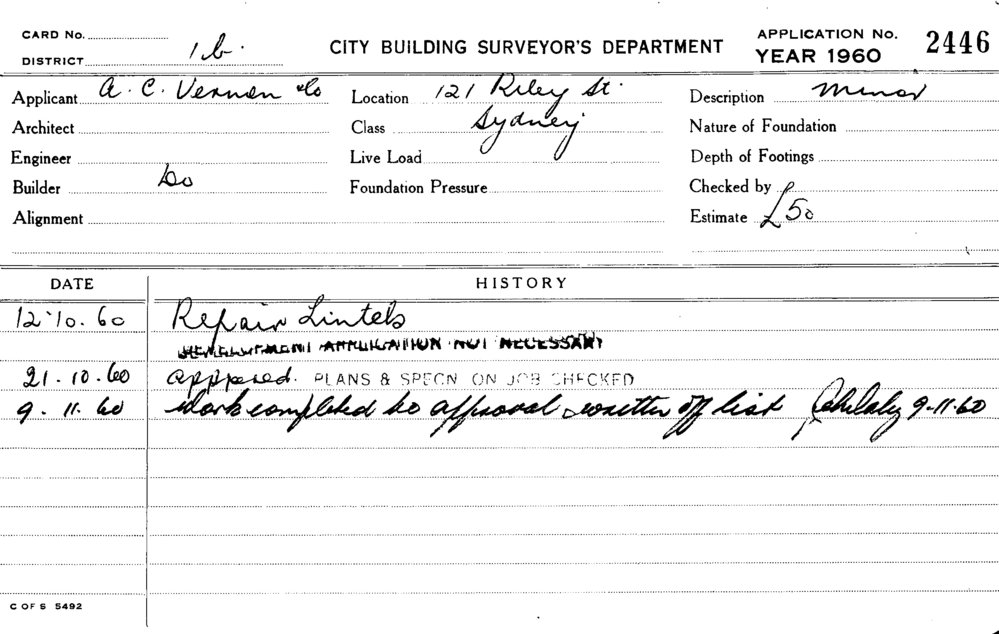 CARD No.
DISTRICT 1b.
CITY BUILDING SURVEYOR'S DEPARTMENT
APPLICATION No. 2446
YEAR 1960
Applicant A. C. Vernon & Co
Location 121 Riley St.
Description Minor
Architect
Class Sydney
Nature of Foundation
Engineer
Live Load
Depth of Footings
Builder Do
Foundation Pressure
Checked by
Alignment
Estimate £50
DATE HISTORY
12.10.60 Repair Lintels
DEVELOPMENT APPLICATION NOT NECESSARY
21.10.60 apppred. PLANS & SPECN ON JOB CHECKED
9.11.60 Work completed to approval & written off list 9.11.60
C OF S 5492